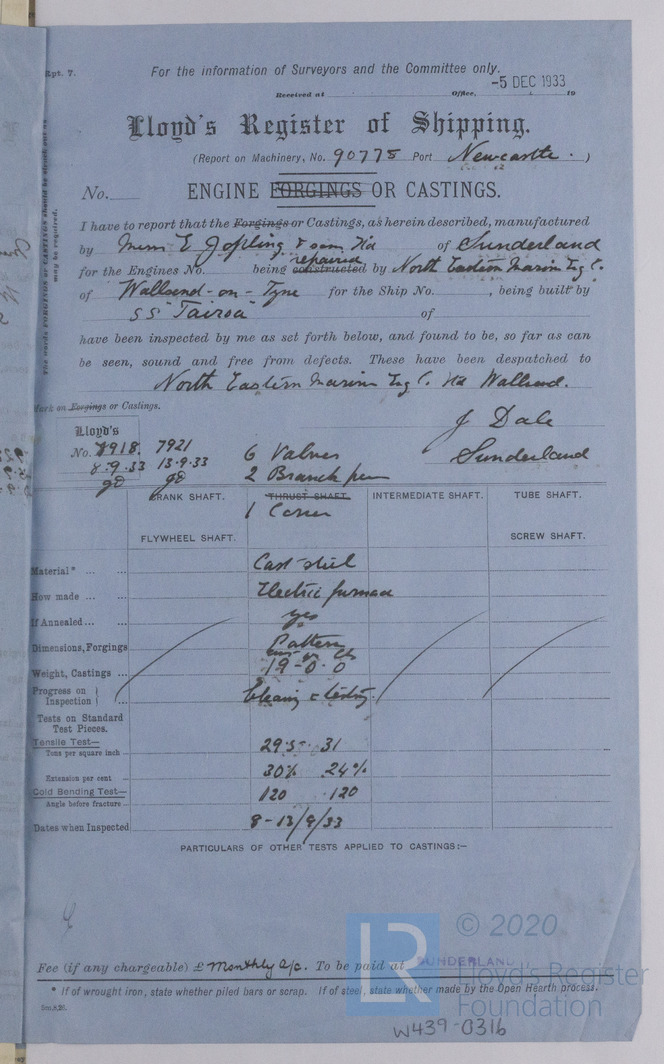 Rpt. 7.
For the information of Surveyors and the Committee only.
-5 DEC 1933
Received at Office, 19
Lloyd's Register of Shipping.
(Report on Machinery, No. 90775 Port Newcastle.)
No. ENGINE FORGINGS OR CASTINGS.
The words FORGINGS or CASTINGS should be struck out as
may be required.
I have to report that the Forgings or Castings, as herein described, manufactured
by Messrs E Jopling & Sons Ltd of Sunderland
repaired
for the Engines No. being constructed by North Eastern Marine Eng Co.
of Wallsend-on-Tyne for the Ship No. , being built by
SS "Tairoa" of
have been inspected by me as set forth below, and found to be, so far as can
be seen, sound and free from defects. These have been despatched to
North Eastern Marine Eng Co. Ltd Wallsend.
Mark on Forgings or Castings.
J Dale
Sunderland
Lloyd's
No. 7918. 7921
8.9.33 13.9.33
6 Valves
2 Branch
CRANK SHAFT. THRUST SHAFT. INTERMEDIATE SHAFT. TUBE SHAFT.
1 Cover
FLYWHEEL SHAFT. SCREW SHAFT.
Material* ... ... Cast steel
How made ... ... Electric furnace
If Annealed ... ... yes
Dimensions, Forgings Pattern
Weight, Castings ... 19-0-0
Progress on Inspection } ... Cleaning & testing.
Tests on Standard
Test Pieces.
Tensile Test—
Tons per square inch ... 29.5 . 31
Extension per cent 30% 24%
Cold Bending Test—
Angle before fracture 120 . 120
Dates when Inspected 8-13/9/33
PARTICULARS OF OTHER TESTS APPLIED TO CASTINGS:—
Fee (if any chargeable) £ Monthly a/c. To be paid at SUNDERLAND
* If of wrought iron, state whether piled bars or scrap. If of steel, state whether made by the Open Hearth process.
LR © 2020
Lloyd's Register
Foundation
W439-0316